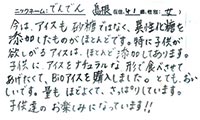 ニックネーム：でんでん 島根（在住・41歳・女）
今は、アイスも砂糖ではなく、異性化糖を
添加したものがほとんどです。特に子供が
欲しがるアイスは、ほとんど添加してあります。
子供に、アイスもナチュラルな形で食べさせて
あげたくて、Bioアイスを購入しました。とても、おい
しいです。量もほどよくて、さっぱりしています。
子供達のお楽しみになっています!!